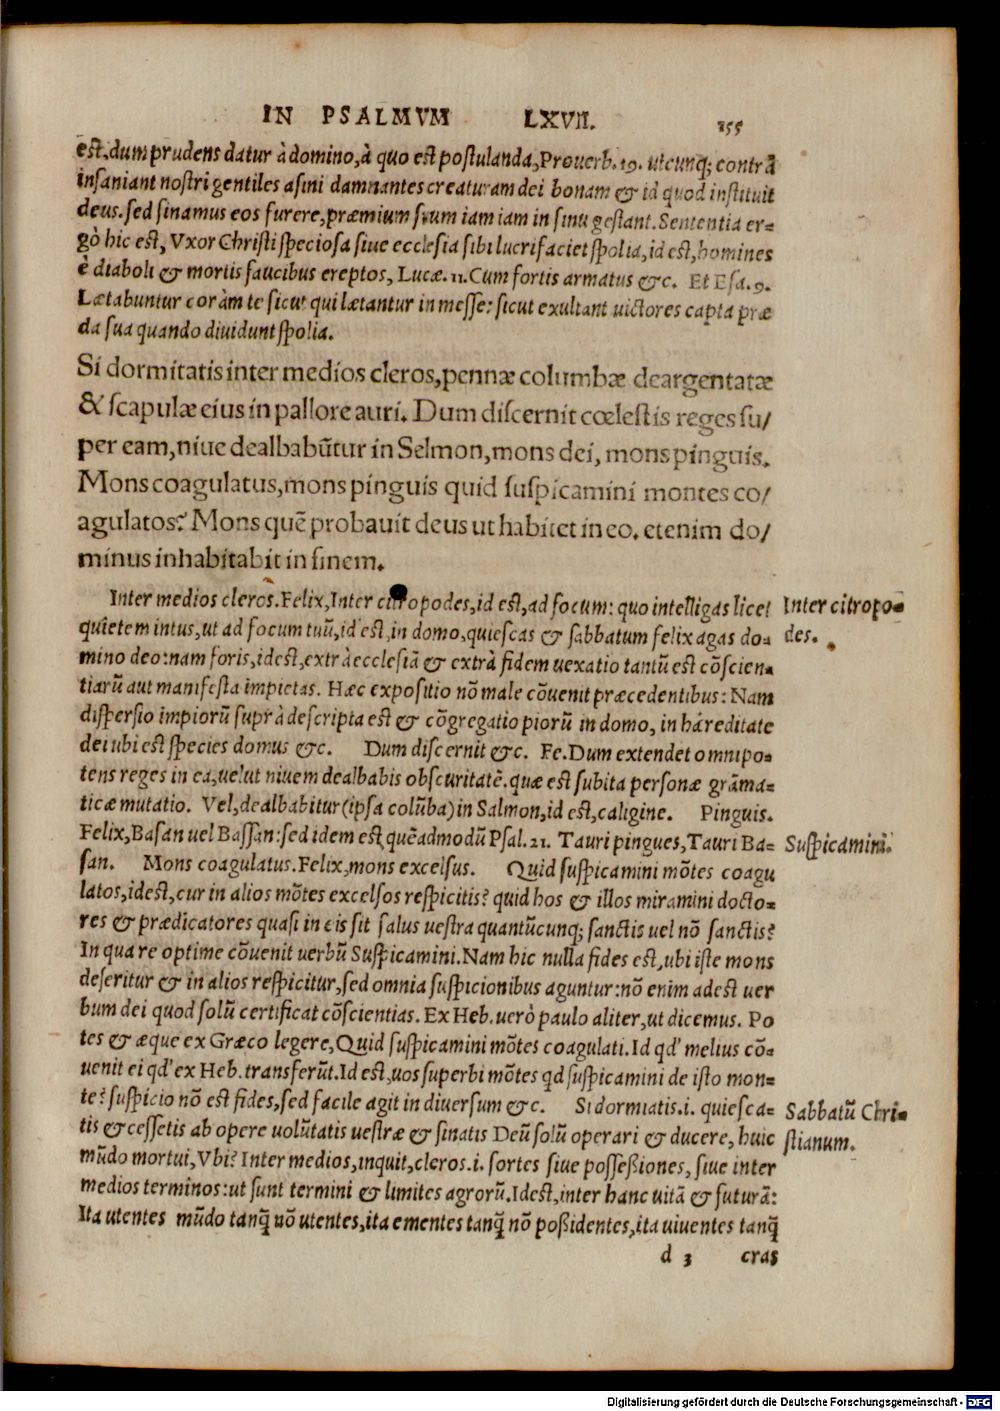 IN PSALMVM LXVII. 155
est, dum prudens datur à domino, à quo est postulanda, Prouerb. 19. utcunq; contrà
insaniant nostri gentiles asini damnantes creaturam dei bonam & id quod instituit
deus. sed sinamus eos furere, præmium suum iam iam in sinu gestant. Sententia er=
gò hic est, Vxor Christi speciosa siue ecclesia sibi lucrifaciet spolia, id est, homines
è diaboli & mortis faucibus ereptos, Lucæ. 11. Cum fortis armatus &c. Et Esa. 9.
Lætabuntur coràm te sicut qui lætantur in messe: sicut exultant uictores capta præ
da sua quando diuidunt spolia.
Si dormitatis inter medios cleros, pennæ columbæ deargentatæ
& scapulæ eius in pallore auri. Dum discernit cœlestis reges su/
per eam, niue dealbabūtur in Selmon, mons dei, mons pinguis.
Mons coagulatus, mons pinguis quid suspicamini montes co/
agulatos? Mons quē probauit deus ut habitet in eo. etenim do/
minus inhabitabit in finem.
Inter medios cleros. Felix, Inter citropodes, id est, ad focum: quo intelligas licet
quietem intus, ut ad focum tuū, id est, in domo, quiescas & sabbatum felix agas do=
mino deo: nam foris, idest, extrà ecclesiā & extrà fidem uexatio tantū est cōscien=
tiarū aut manifesta impietas. Hæc expositio nō male cōuenit præcedentibus: Nam
dispersio impiorū suprà descripta est & cōgregatio piorū in domo, in hæreditate
dei ubi est species domus &c. Dum discernit &c. Fe. Dum extendet omnipo=
tens reges in ea, uelut niuem dealbabis obscuritatē. quæ est subita personæ grāma=
ticæ mutatio. Vel, dealbabitur (ipsa colūba) in Salmon, id est, caligine. Pinguis.
Felix, Basan uel Bassan: sed idem est quēadmodū Psal. 21. Tauri pingues, Tauri Ba=
san. Mons coagulatus. Felix, mons excelsus. Quid suspicamini mōtes coagu
latos, idest, cur in alios mōtes excelsos respicitis? quid hos & illos miramini docto=
res & prædicatores quasi in eis sit salus uestra quantūcunq; sanctis uel nō sanctis?
In qua re optime cōuenit uerbū Suspicamini. Nam hic nulla fides est, ubi iste mons
deseritur & in alios respicitur, sed omnia suspicionibus aguntur: nō enim adest uer
bum dei quod solū certificat cōscientias. Ex Heb. uerò paulo aliter, ut dicemus. Po
tes & æque ex Græco legere, Quid suspicamini mōtes coagulati. Id qd' melius cō=
uenit ei qd' ex Heb. transferūt. Id est, uos superbi mōtes qd suspicamini de isto mon=
te? suspicio nō est fides, sed facile agit in diuersum &c. Si dormiatis .i. quiesca=
tis & cessetis ab opere uolūtatis uestræ & sinatis Deū solū operari & ducere, huic
mūdo mortui, Vbi? Inter medios, inquit, cleros .i. sortes siue possessiones, siue inter
medios terminos: ut sunt termini & limites agrorū. Idest, inter hanc uitā & futurā:
Ita utentes mūdo tanq̄ nō utentes, ita ementes tanq̄ nō possidentes, ita uiuentes tanq̄
d 3 cras
Inter citropo=
des.
Suspicamini.
Sabbatū Chri=
stianum.
Digitalisierung gefördert durch die Deutsche Forschungsgemeinschaft - DFG